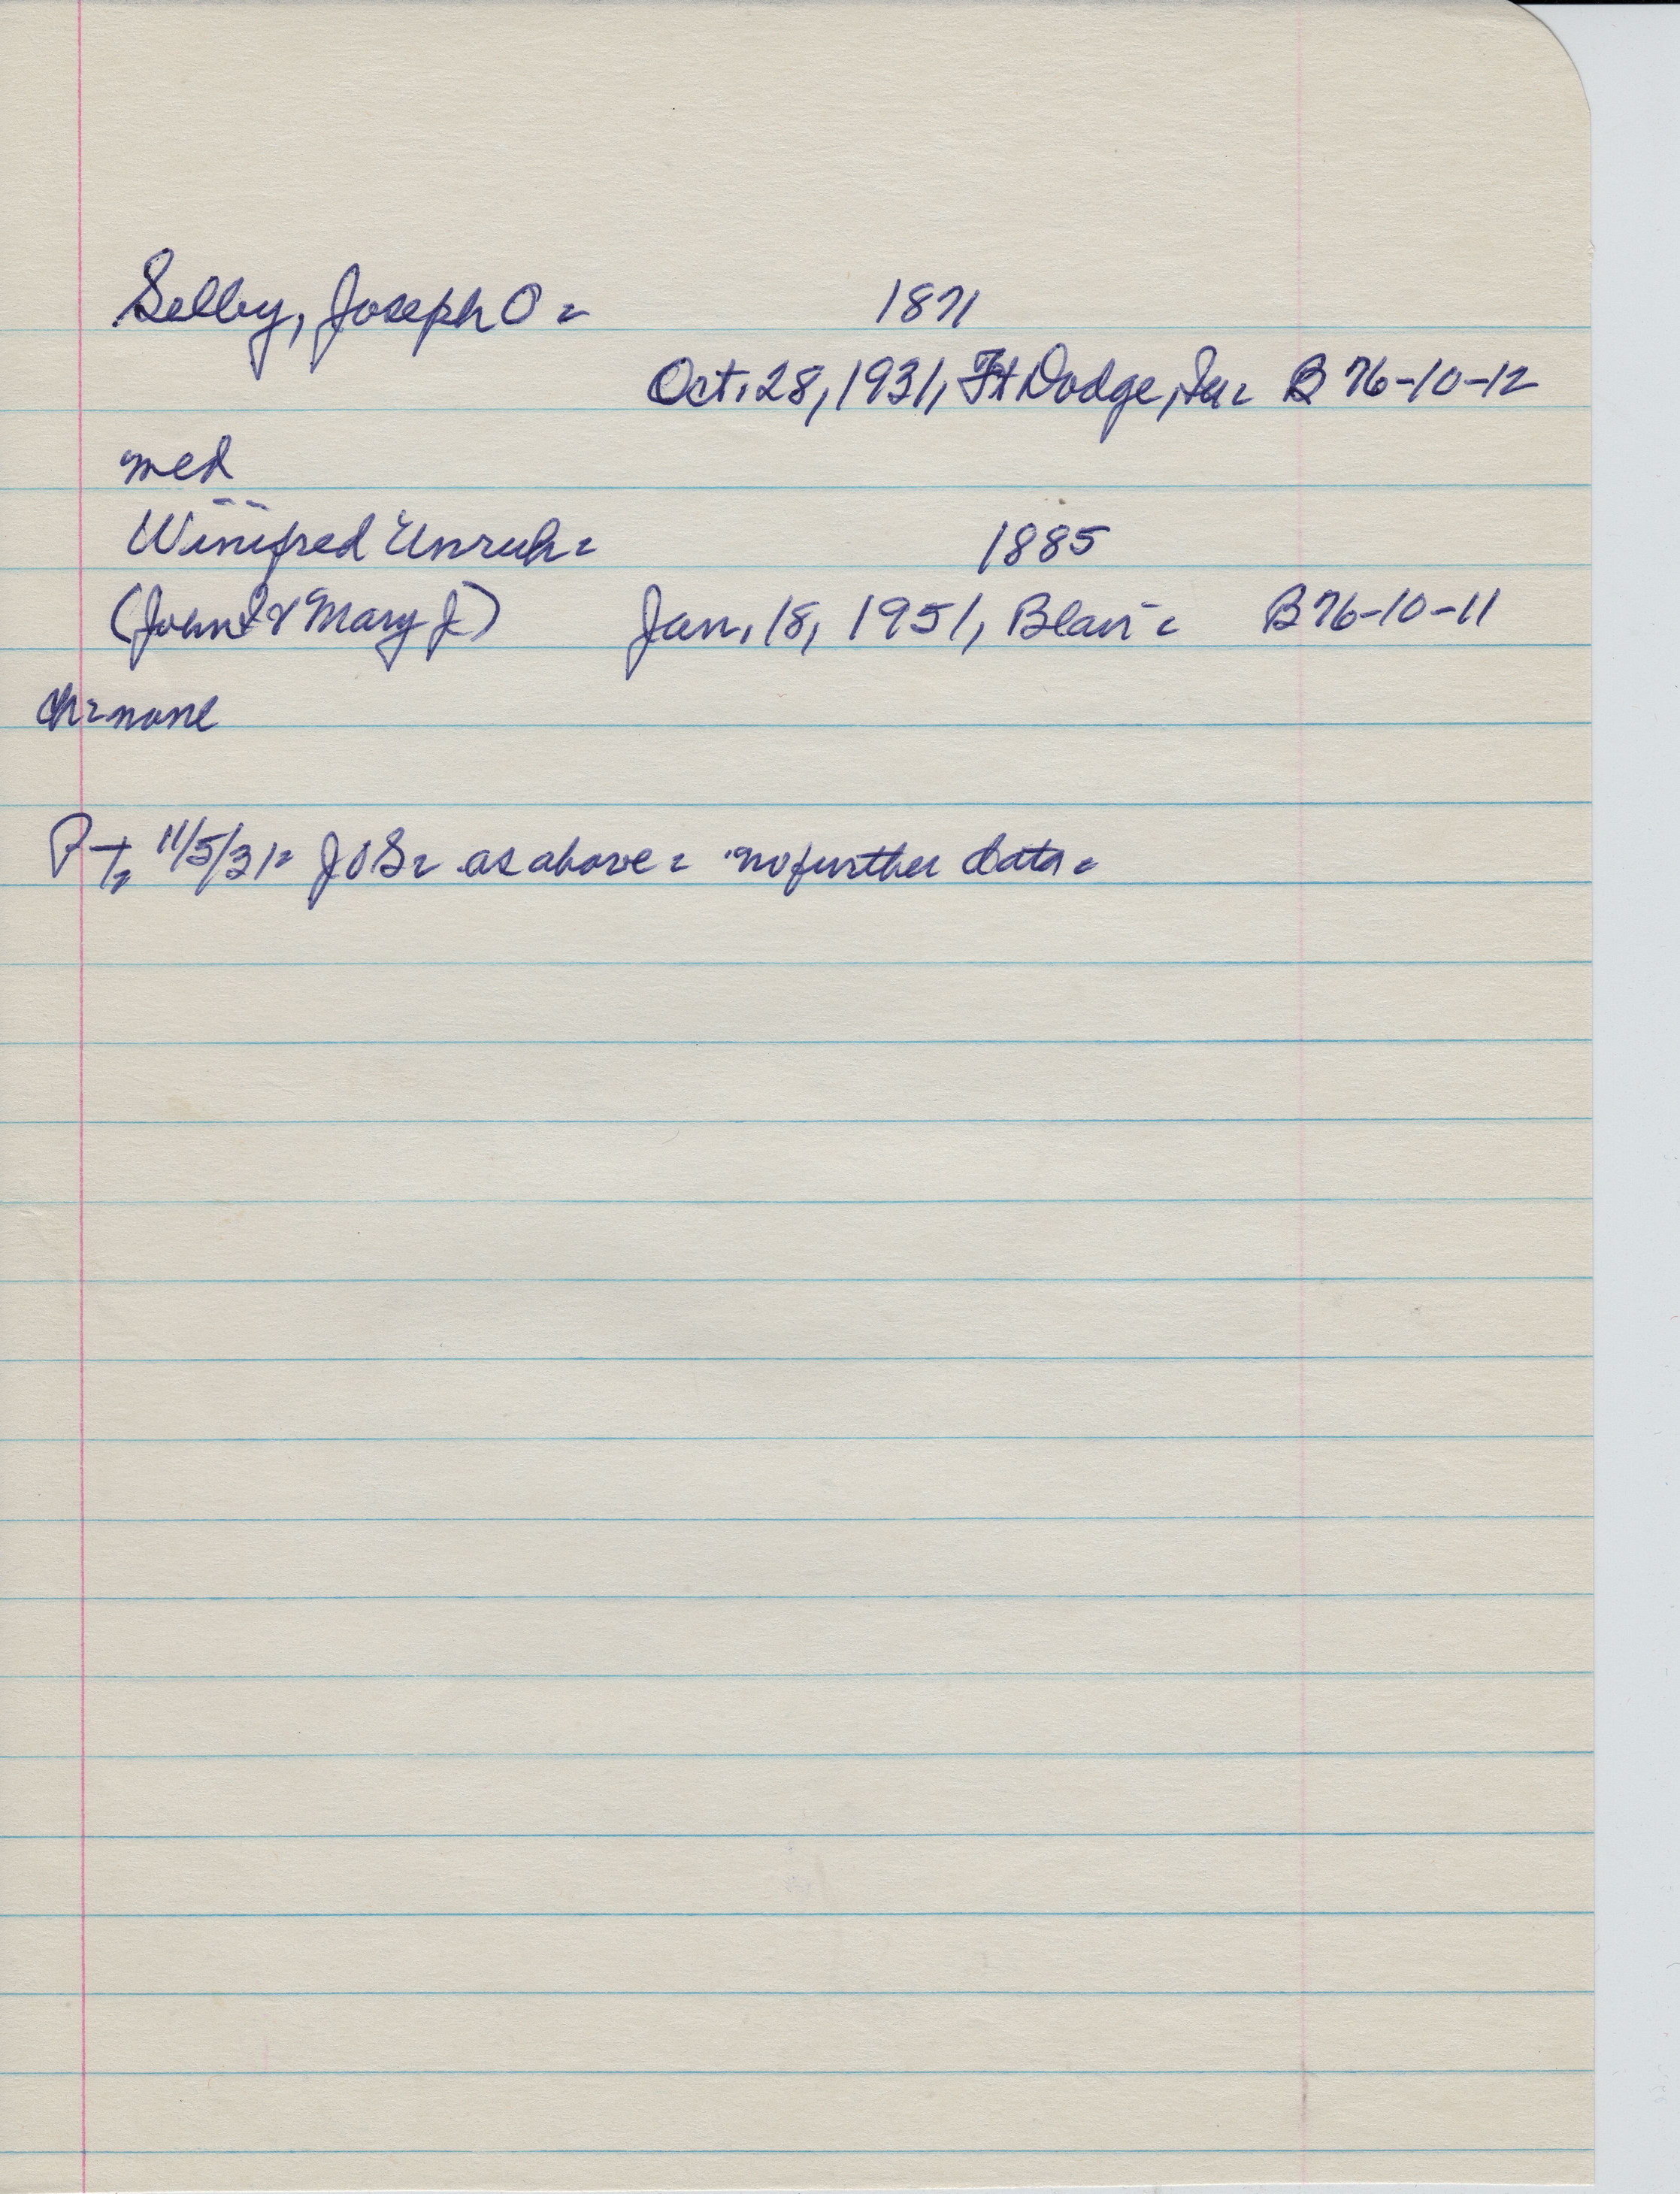 Selby, Joseph O = 1871
Oct. 28, 1931, Ft Dodge, Ia = B 76-10-12
med
Winifred Unruh = 1885
(John & Mary J) Jan. 18, 1951, Blair = B 76-10-11
ch = none
P-T, 11/5/31 = JOS = as above = no further data =